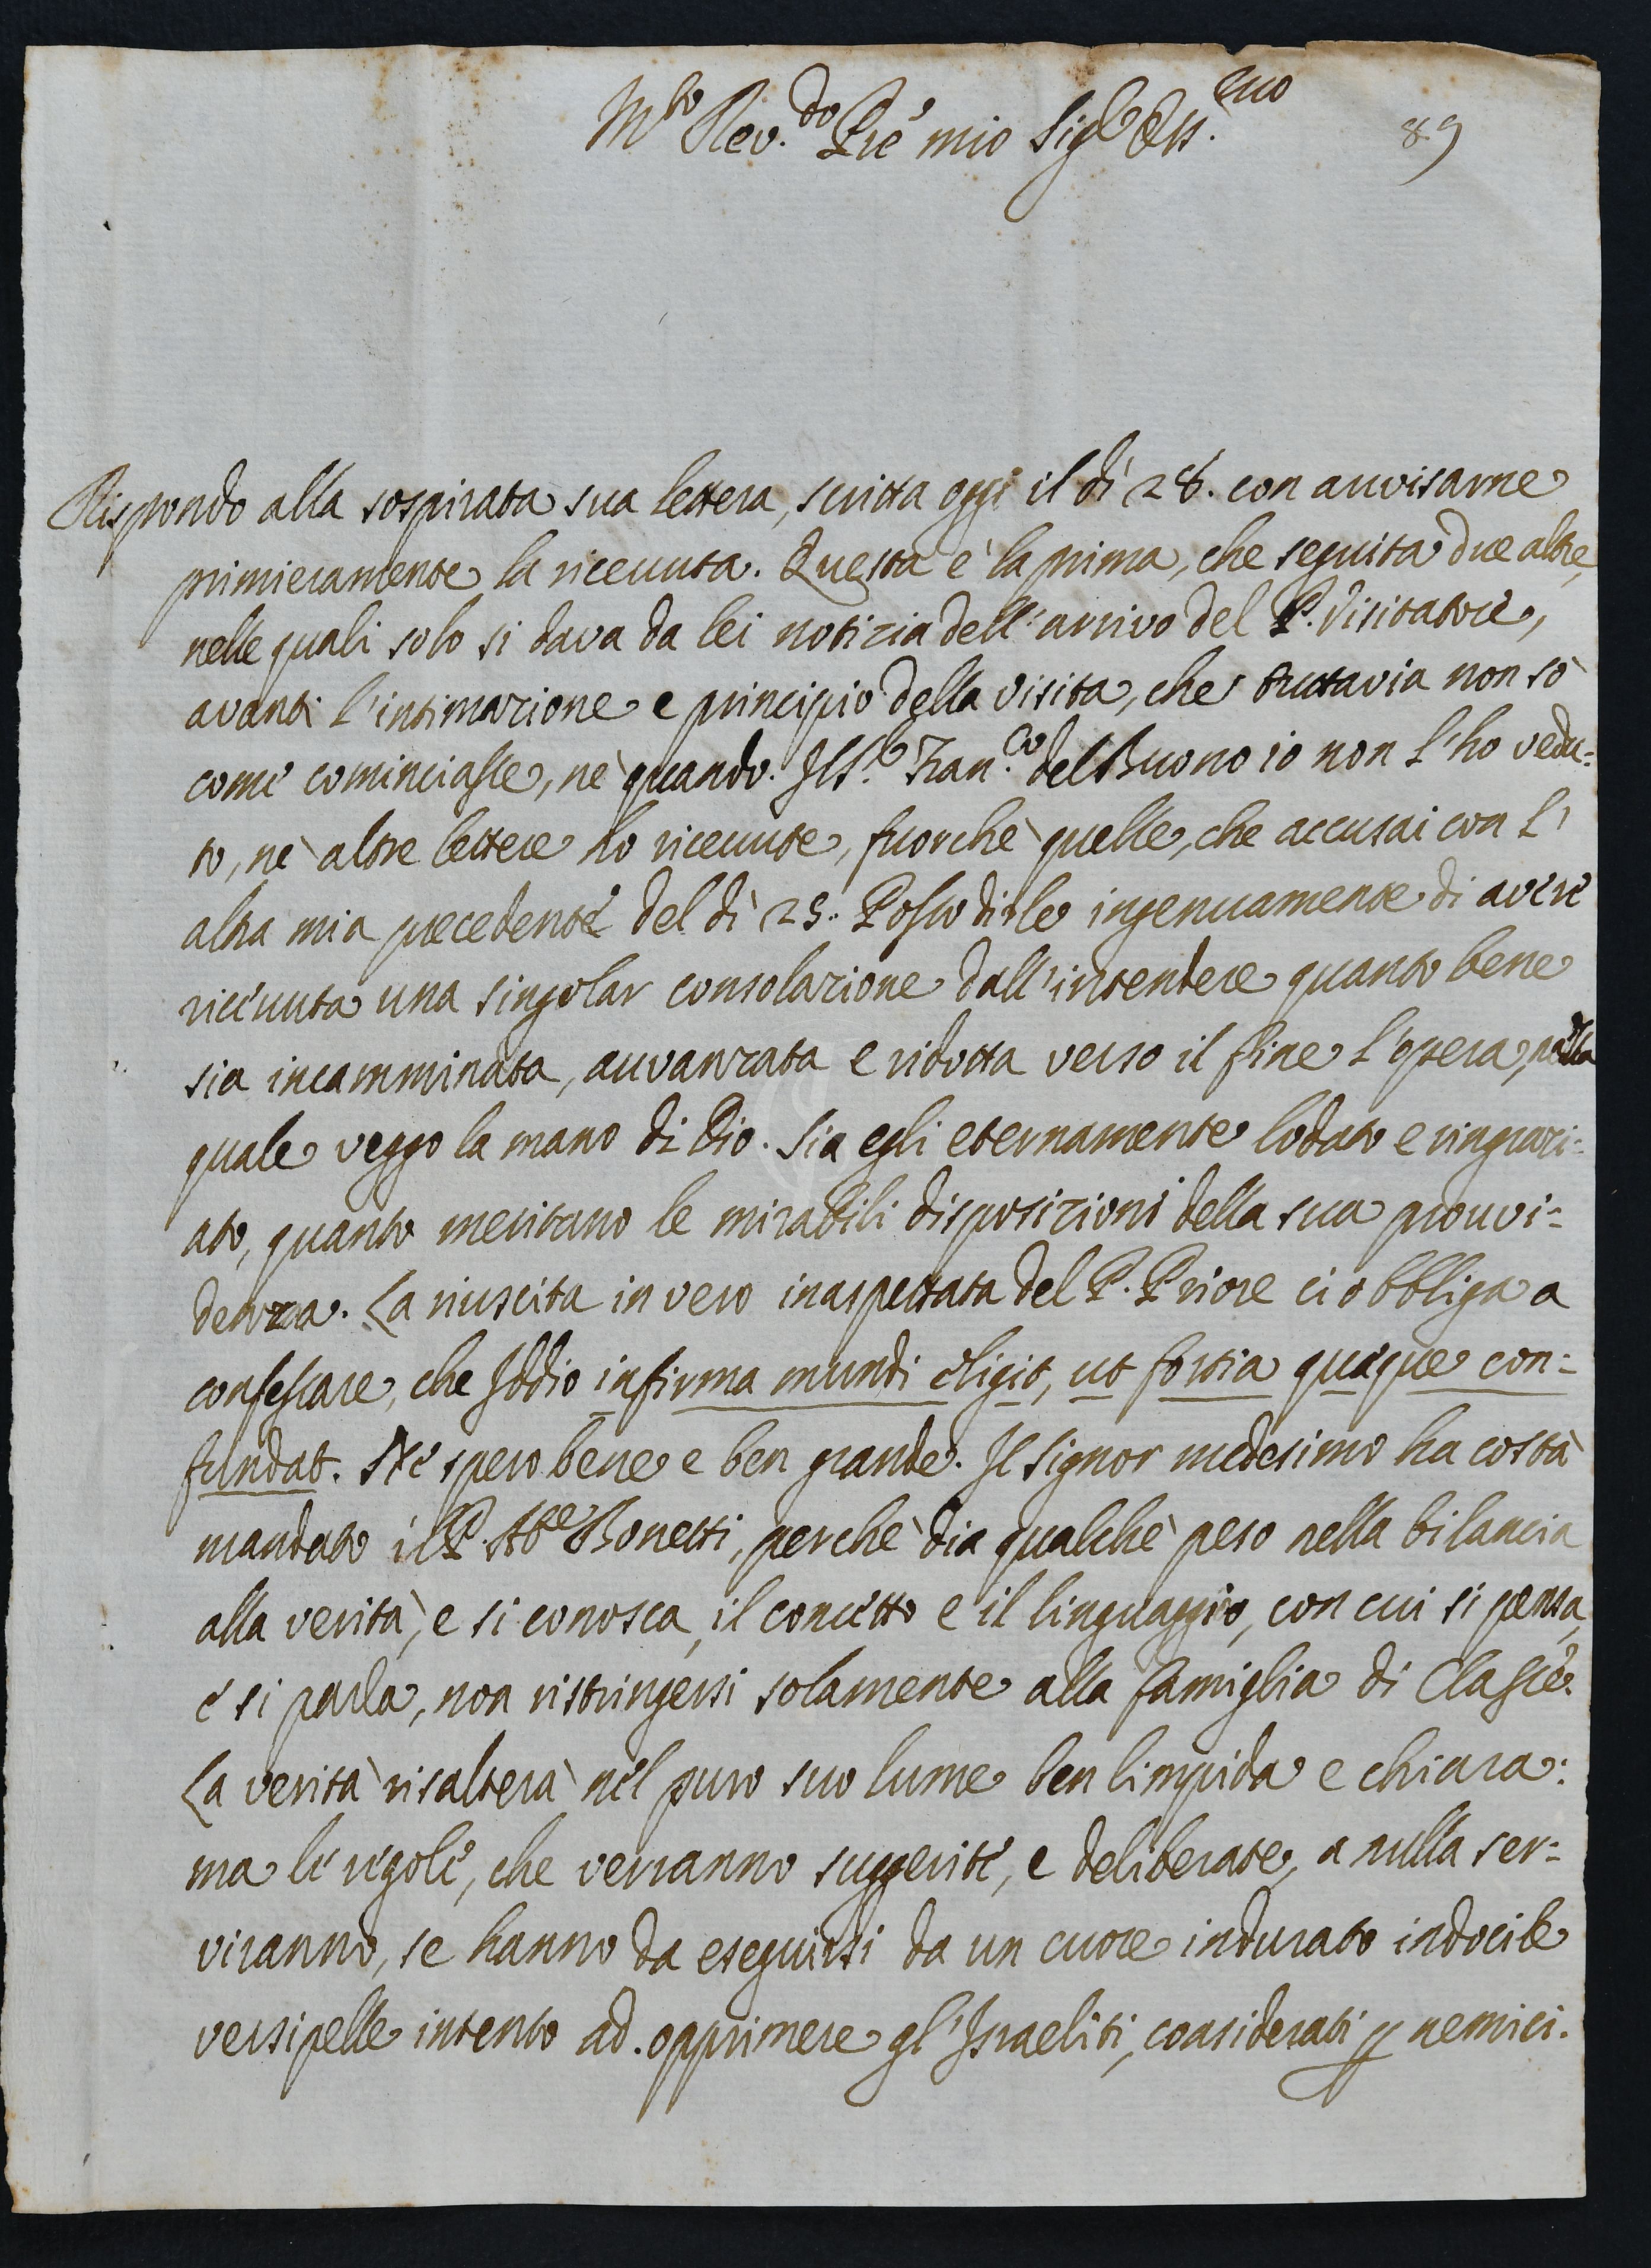 M.to Rev.do P.re mio Sig.re Oss.mo
89
Rispondo alla sospirata sua lettera, scritta oggi il dì 28. con avvisarne
primieramente la ricevuta. Questa è la prima, che seguita due altre,
nelle quali solo si dava da lei notizia dell'arrivo del P. Visitatore,
avanti l'intimazione e principio della visita, che tuttavia non sò
come cominciasse, nè quando. Il S.r Fran.co del Buono io non l'ho vedu=
to, nè altre lettere ho ricevute, fuorchè quelle, che accusai con l'
altra mia precedente del dì 25. Posso dirle ingenuamente di avere
ricevuta una singolar consolazione dall'intendere quanto bene
sia incamminata, avvanzata e ridotta verso il fine l'opera, nella
quale veggo la mano di Dio. Sia egli eternamente lodato e ringrazi=
ato, quanto meritano le mirabili disposizioni della sua provvi=
denza. La riuscita in vero inaspettata del P. Priore ci obbliga a
confessare, che Iddio infirma mundi eligit, ut fortia quæque con=
fundat. Ne spero bene e ben grande. Il Signor medesimo ha costà
mandato il P. Ab.e Bonetti, perchè dia qualche peso nella bilancia
alla verità, e si conosca, il concetto e il linguaggio, con cui si pensa,
e si parla, non ristringersi solamente alla famiglia di Classe.
La verità risalterà nel puro suo lume ben limpida e chiara:
ma le regole, che verranno suggerite, e deliberate, a nulla ser=
viranno, se hanno da eseguirsi da un cuore indurato indocile
versipelle intento ad opprimere gl'Israeliti, considerati p nemici.